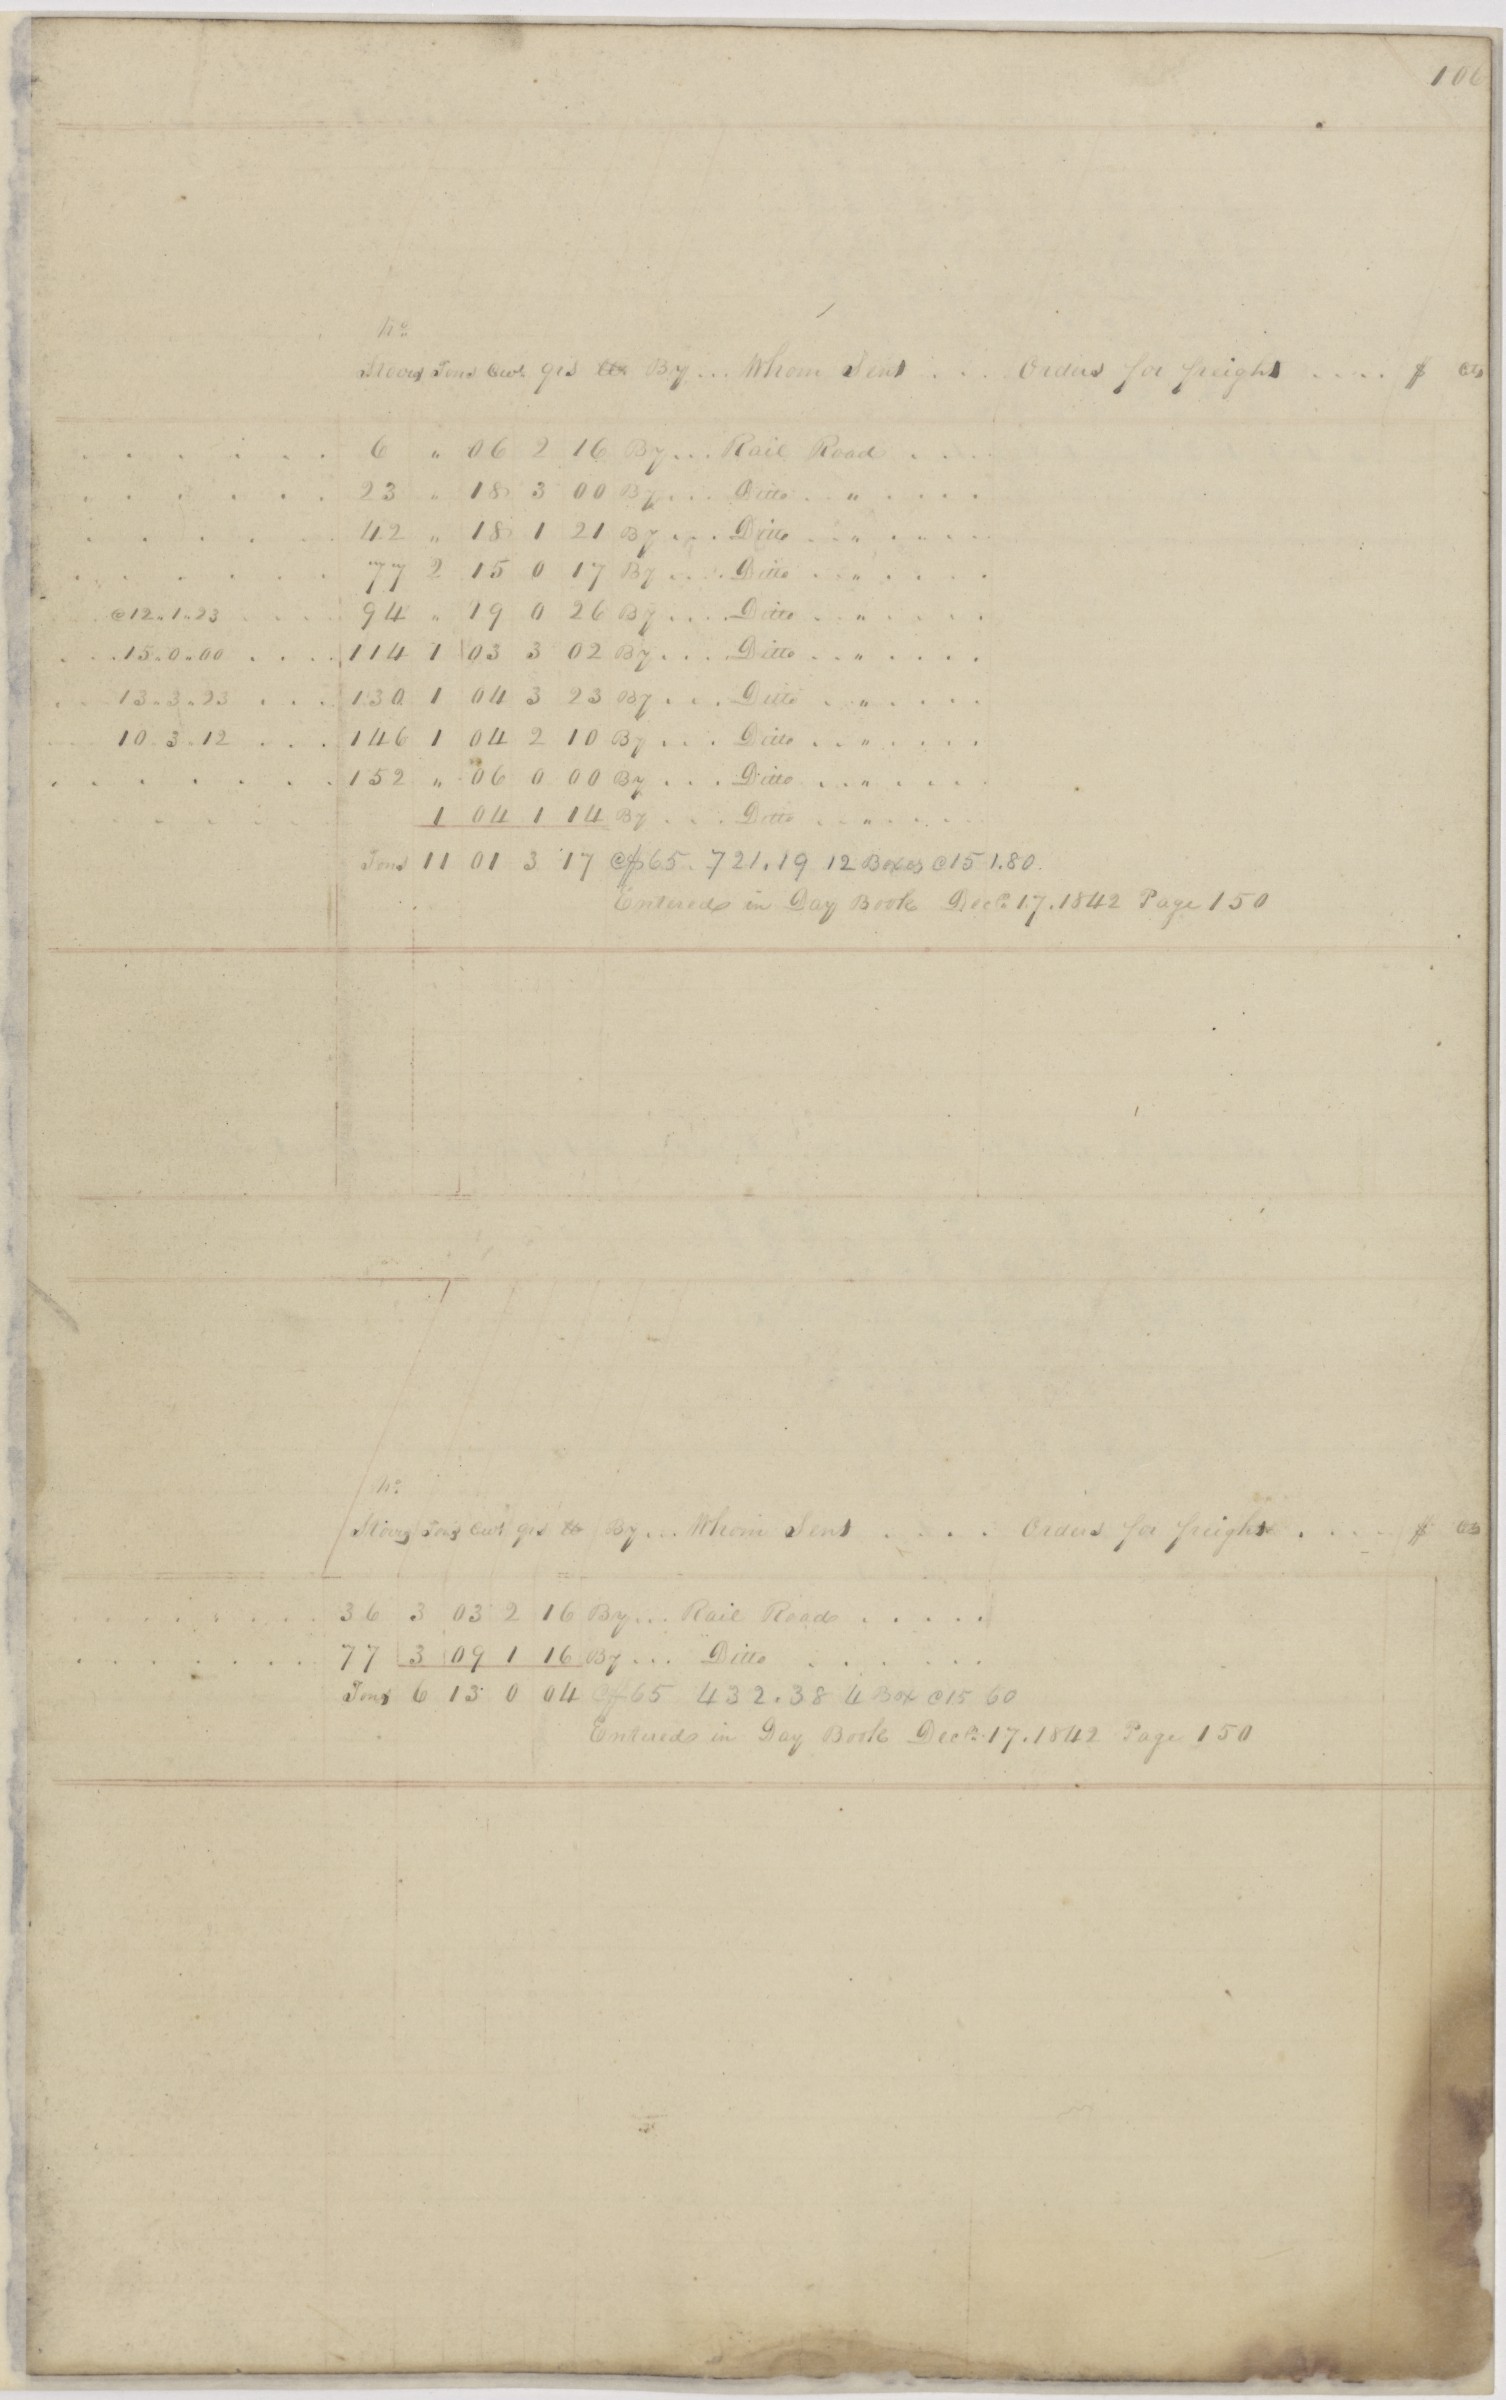 106
No
Stoves Tons Cwt qrs lbs By... Whom Sent . . . Orders for freight . . . . $ Cts
. . . . . . 6 " 06 2 16 By... Rail Road . . . .
. . . . . . 23 " 18 3 00 By.... Ditto . . " . . . .
. . . . . . 42 " 18 1 21 By.... Ditto . . " . . . .
. . . . . . 77 2 15 0 17 By.... Ditto . . " . . . .
@12"1"23 . . . . 94 " 19 0 26 By.... Ditto . . " . . . .
. . . 15"0"00 . . . . 114 1 03 3 02 By.... Ditto . . " . . . .
. . . 13"3"23 . . . 130 1 04 3 23 By.... Ditto . " . . . .
10.3.12 . . . 146 1 04 2 10 By.... Ditto . . " . . . .
. . . . . . . 152 " 06 0 00 By.... Ditto . . " . . . .
. . . . . . 1 04 1 14 By.... Ditto . . " . . . .
Tons 11 01 3 17 @$65. 721.19 12 Boxes @15 1.80
Entered in Day Book Decr. 17. 1842 Page 150
No
Stoves Tons Cwt qrs lbs By... Whom Sent . . . . Orders for freight . . . . $ Cts
. . . . . . . . 36 3 03 2 16 By... Rail Road . . . . .
. . . . . . . 77 3 09 1 16 By... Ditto . . . . . .
Tons 6 13 0 04 @$65 432.38 4 Box @15 60
Entered in Day Book Decr. 17. 1842 Page 150